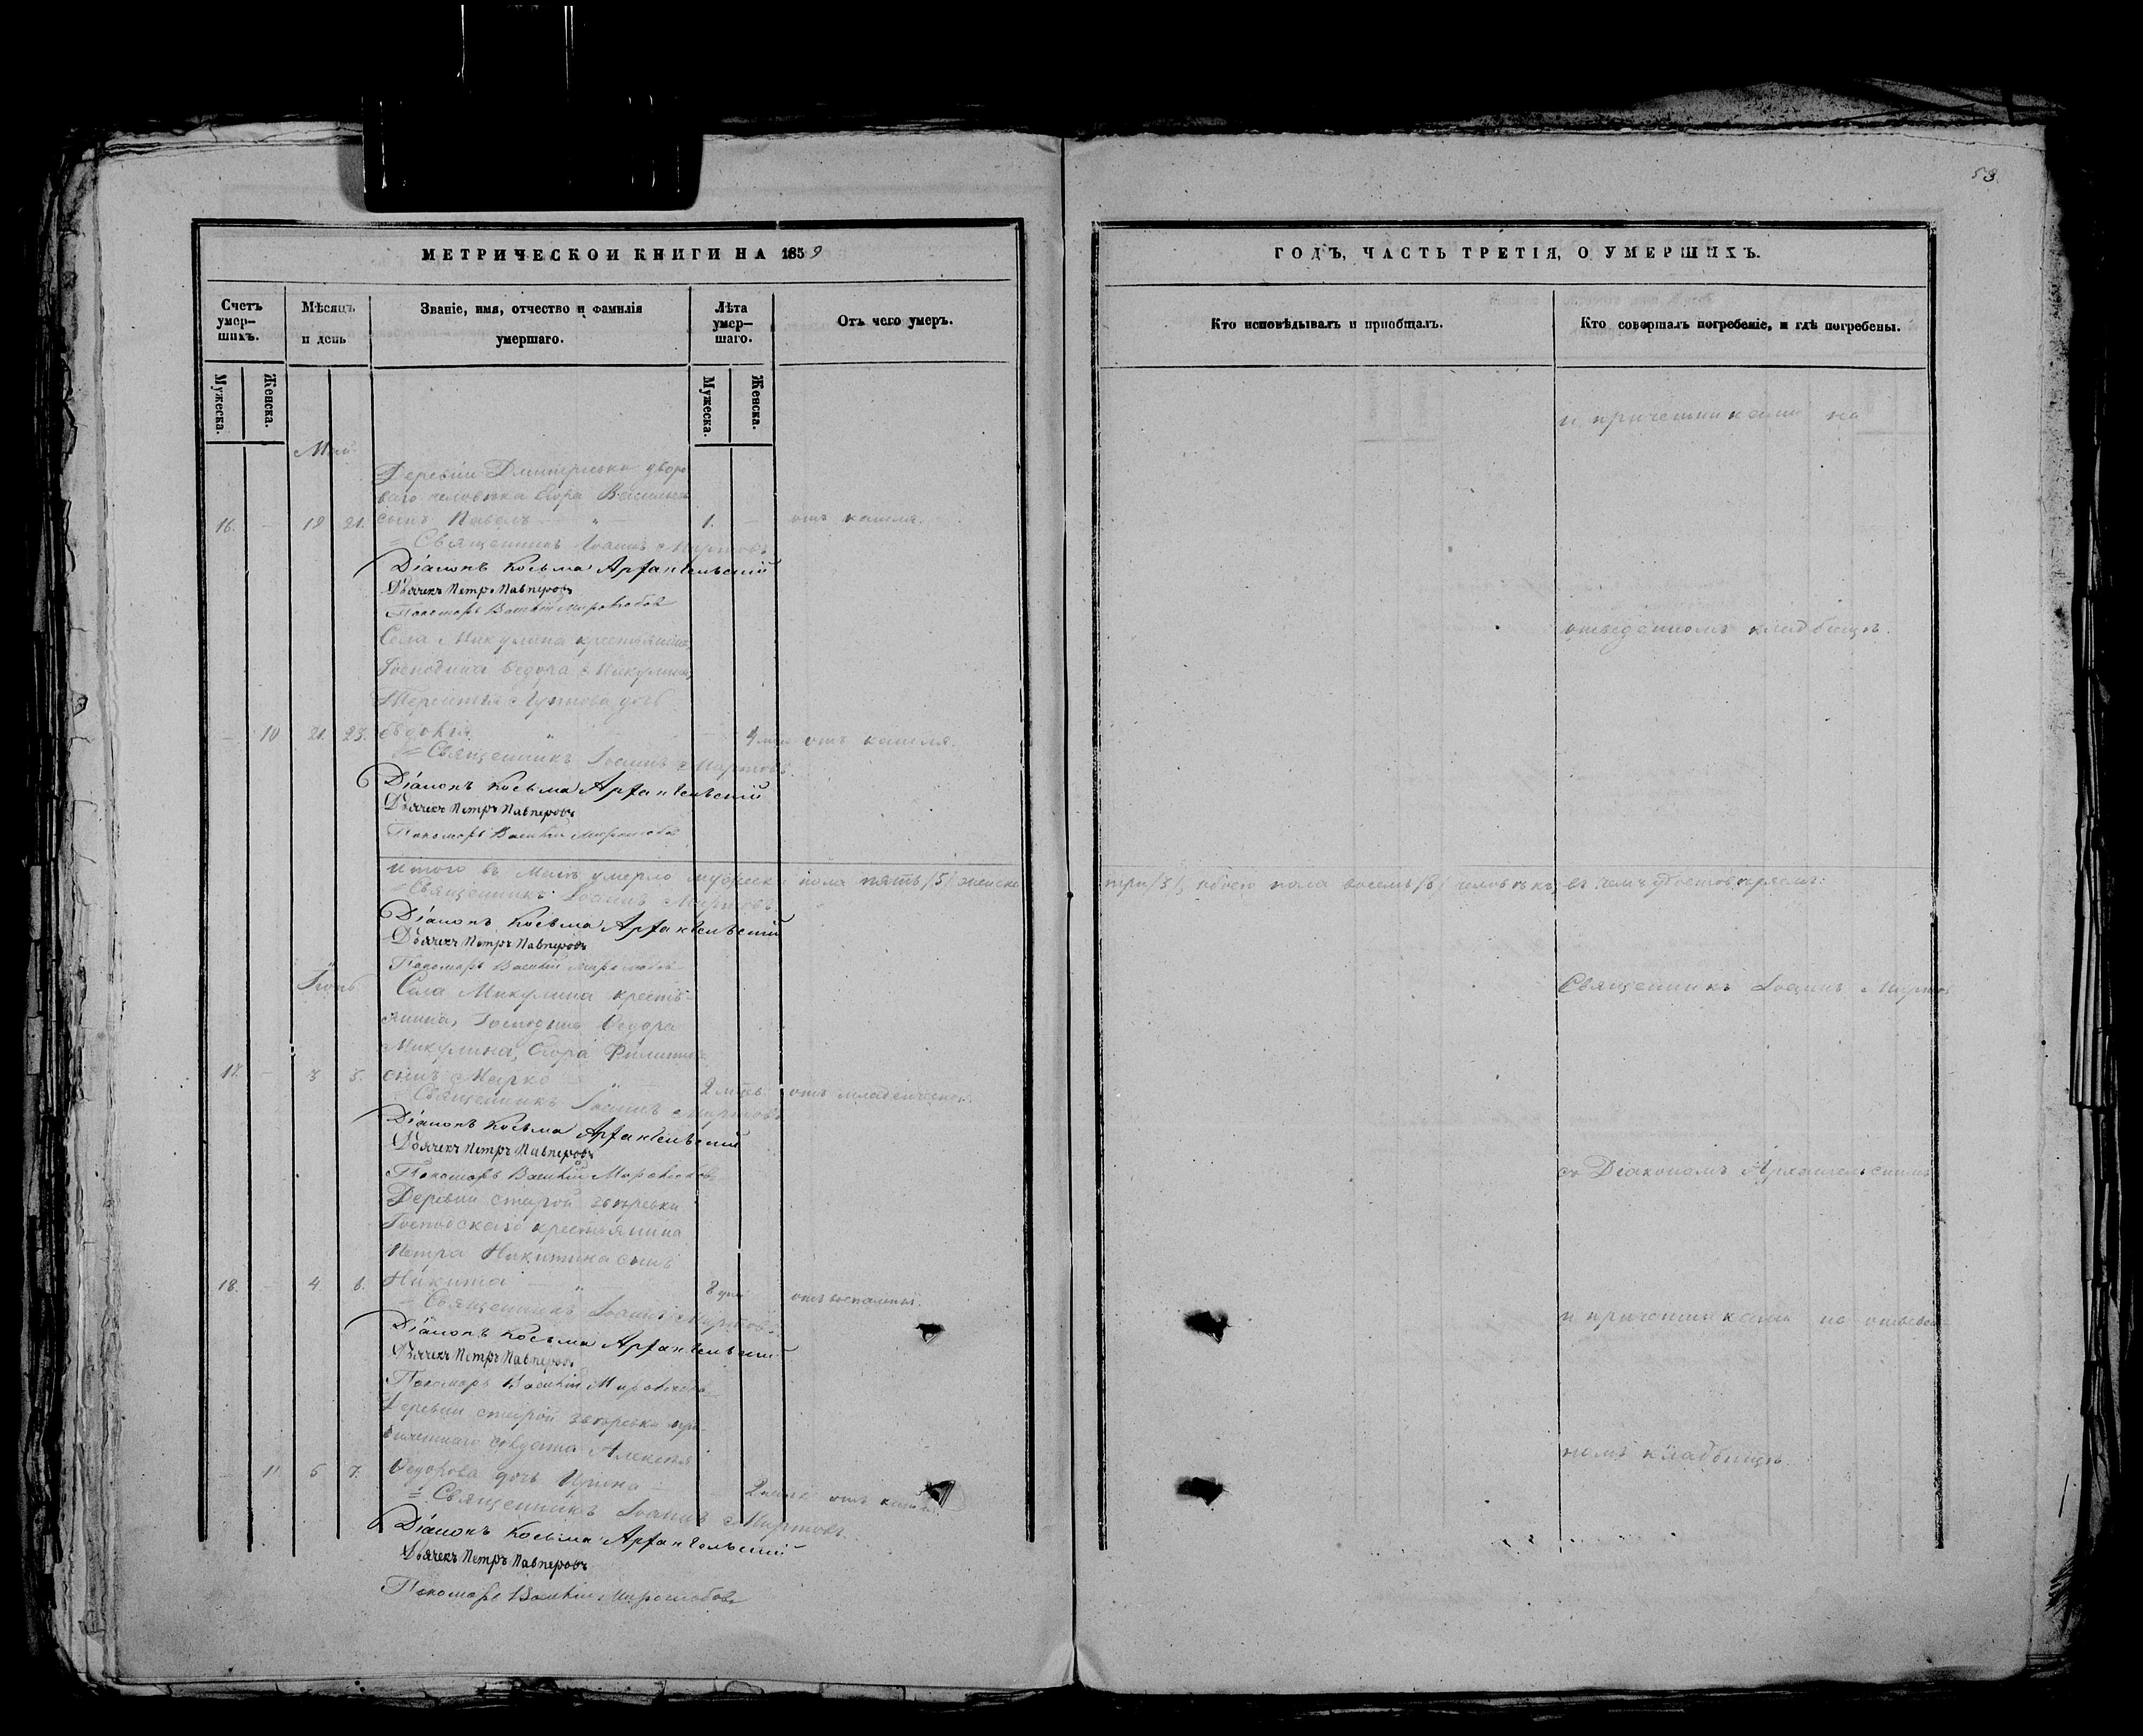 53
МЕТРИЧЕСКОЙ КНИГИ НА 1859
ГОДЪ, ЧАСТЬ ТРЕТІЯ, О УМЕРШИХЪ.
Счетъ умер-шихъ.
Мѣсяцъ и день
Званіе, имя, отчество и фамилія умершаго.
Лѣта умер-шаго.
Отъ чего умеръ.
Кто исповѣдывалъ и пріобщалъ.
Кто совершалъ погребеніе, и гдѣ погребены.
Мужеска.
Женска.
Мужеска.
Женска.
и причетниками на
Май
Деревни Дмитріевки дворо
ваго человѣка Егора Васильева
16. - 19 21. сынъ Павелъ 1. - отъ кашля.
Священникъ Іоаннъ Миртовъ
Діаконъ Косьма Архангельскій
Дьячекъ Петръ Павперовъ
Пономарь Василій Миролюбовъ
Села Микулина крестьянина,
отведенномъ кладбищѣ.
Господина Ѳедора Микулина,
Терентія дочь
- 10 21. 23. Евдокія отъ кашля.
Священникъ Іоаннъ Миртовъ.
Діаконъ Косьма Архангельскій
Дьячекъ Петръ Павперовъ
Пономарь Василій Миролюбовъ
Итого въ Маѣ умерло мужеска пола пять /5/ женска
три /3/, обоего пола восемь /8/ человѣкъ, въ чемъ удостовѣряемъ:
Священникъ Іоаннъ Миртовъ
Діаконъ Косьма Архангельскій
Дьячекъ Петръ Павперовъ
Пономарь Василій Миролюбовъ
Іюнь
Села Микулина кресть-
Священникъ Іоаннъ Миртовъ
янина, Господина Ѳедора
Микулина, Егора Филиппова
17. - 3 5. сынъ Марко отъ младенческой.
Священникъ Іоаннъ Миртовъ
Діаконъ Косьма Архангельскій
Дьячекъ Петръ Павперовъ
Пономарь Василій Миролюбовъ
съ Діакономъ Архангельскимъ
Деревни старой
Господскаго крестьянина
Петра Никитина сынъ
18. - 4. 6. Никита отъ воспалицы.
Священникъ Іоаннъ Миртовъ.
и причетниками на отведен-
Діаконъ Косьма Архангельскій
Дьячекъ Петръ Павперовъ
Пономарь Василій Миролюбовъ
Деревни старой
Алексѣя
номъ кладбищѣ.
- 11 5 7. Ѳедорова дочь Ирина отъ
Священникъ Іоаннъ Миртовъ.
Діаконъ Косьма Архангельскій
Дьячекъ Петръ Павперовъ
Пономарь Василій Миролюбовъ